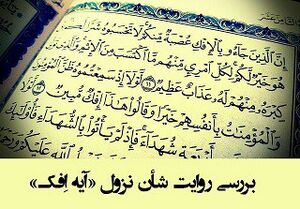 إِنَّ الَّذِينَ جَاءُو بِالْإِفْكِ عُصْبَةٌ مِّنكُمْ لَا تَحْسَبُوهُ شَرًّا
هُوَ خَيْرٌ لَّكُمْ لِكُلِّ امْرِئٍ مِّنْهُم مَّا اكْتَسَبَ مِنَ الْإِثْمِ وَالَّذِي
كِبْرَهُ مِنْهُمْ لَهُ عَذَابٌ عَظِيمٌ ١١ لَّوْلَا إِذْ سَمِعْتُمُوهُ ظَنَّ الْمُؤْ
وَالْمُؤْمِنَٰتُ بِأَنفُسِهِمْ خَيْرًا وَقَالُوا هَٰذَا إِفْكٌ مُّبِينٌ ١٢ لَّوْلَا
شُهَدَاءَ فَإِذْ لَمْ يَأْتُوا بِالشُّهَدَاءِ
اللَّهِ عَلَيْكُمْ
بررسی روایت شأن نزول «آیه اِفک»